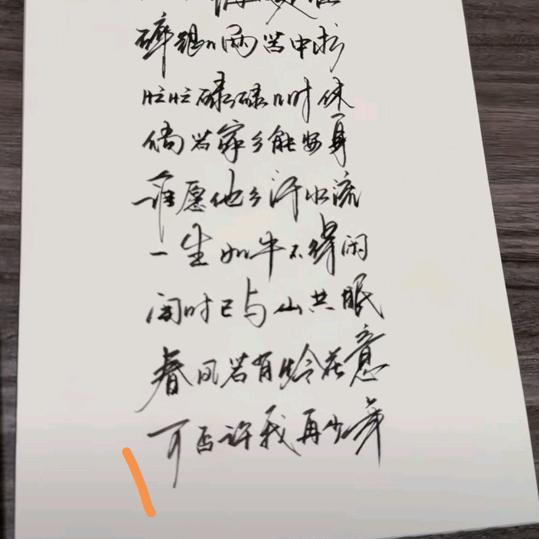 碎银几两苦中求
忙忙碌碌几时休
倘若家乡能安身
谁愿他乡汗水流
一生如牛不得闲
闲时已与山共眠
春风若有怜花意
可否许我再少年